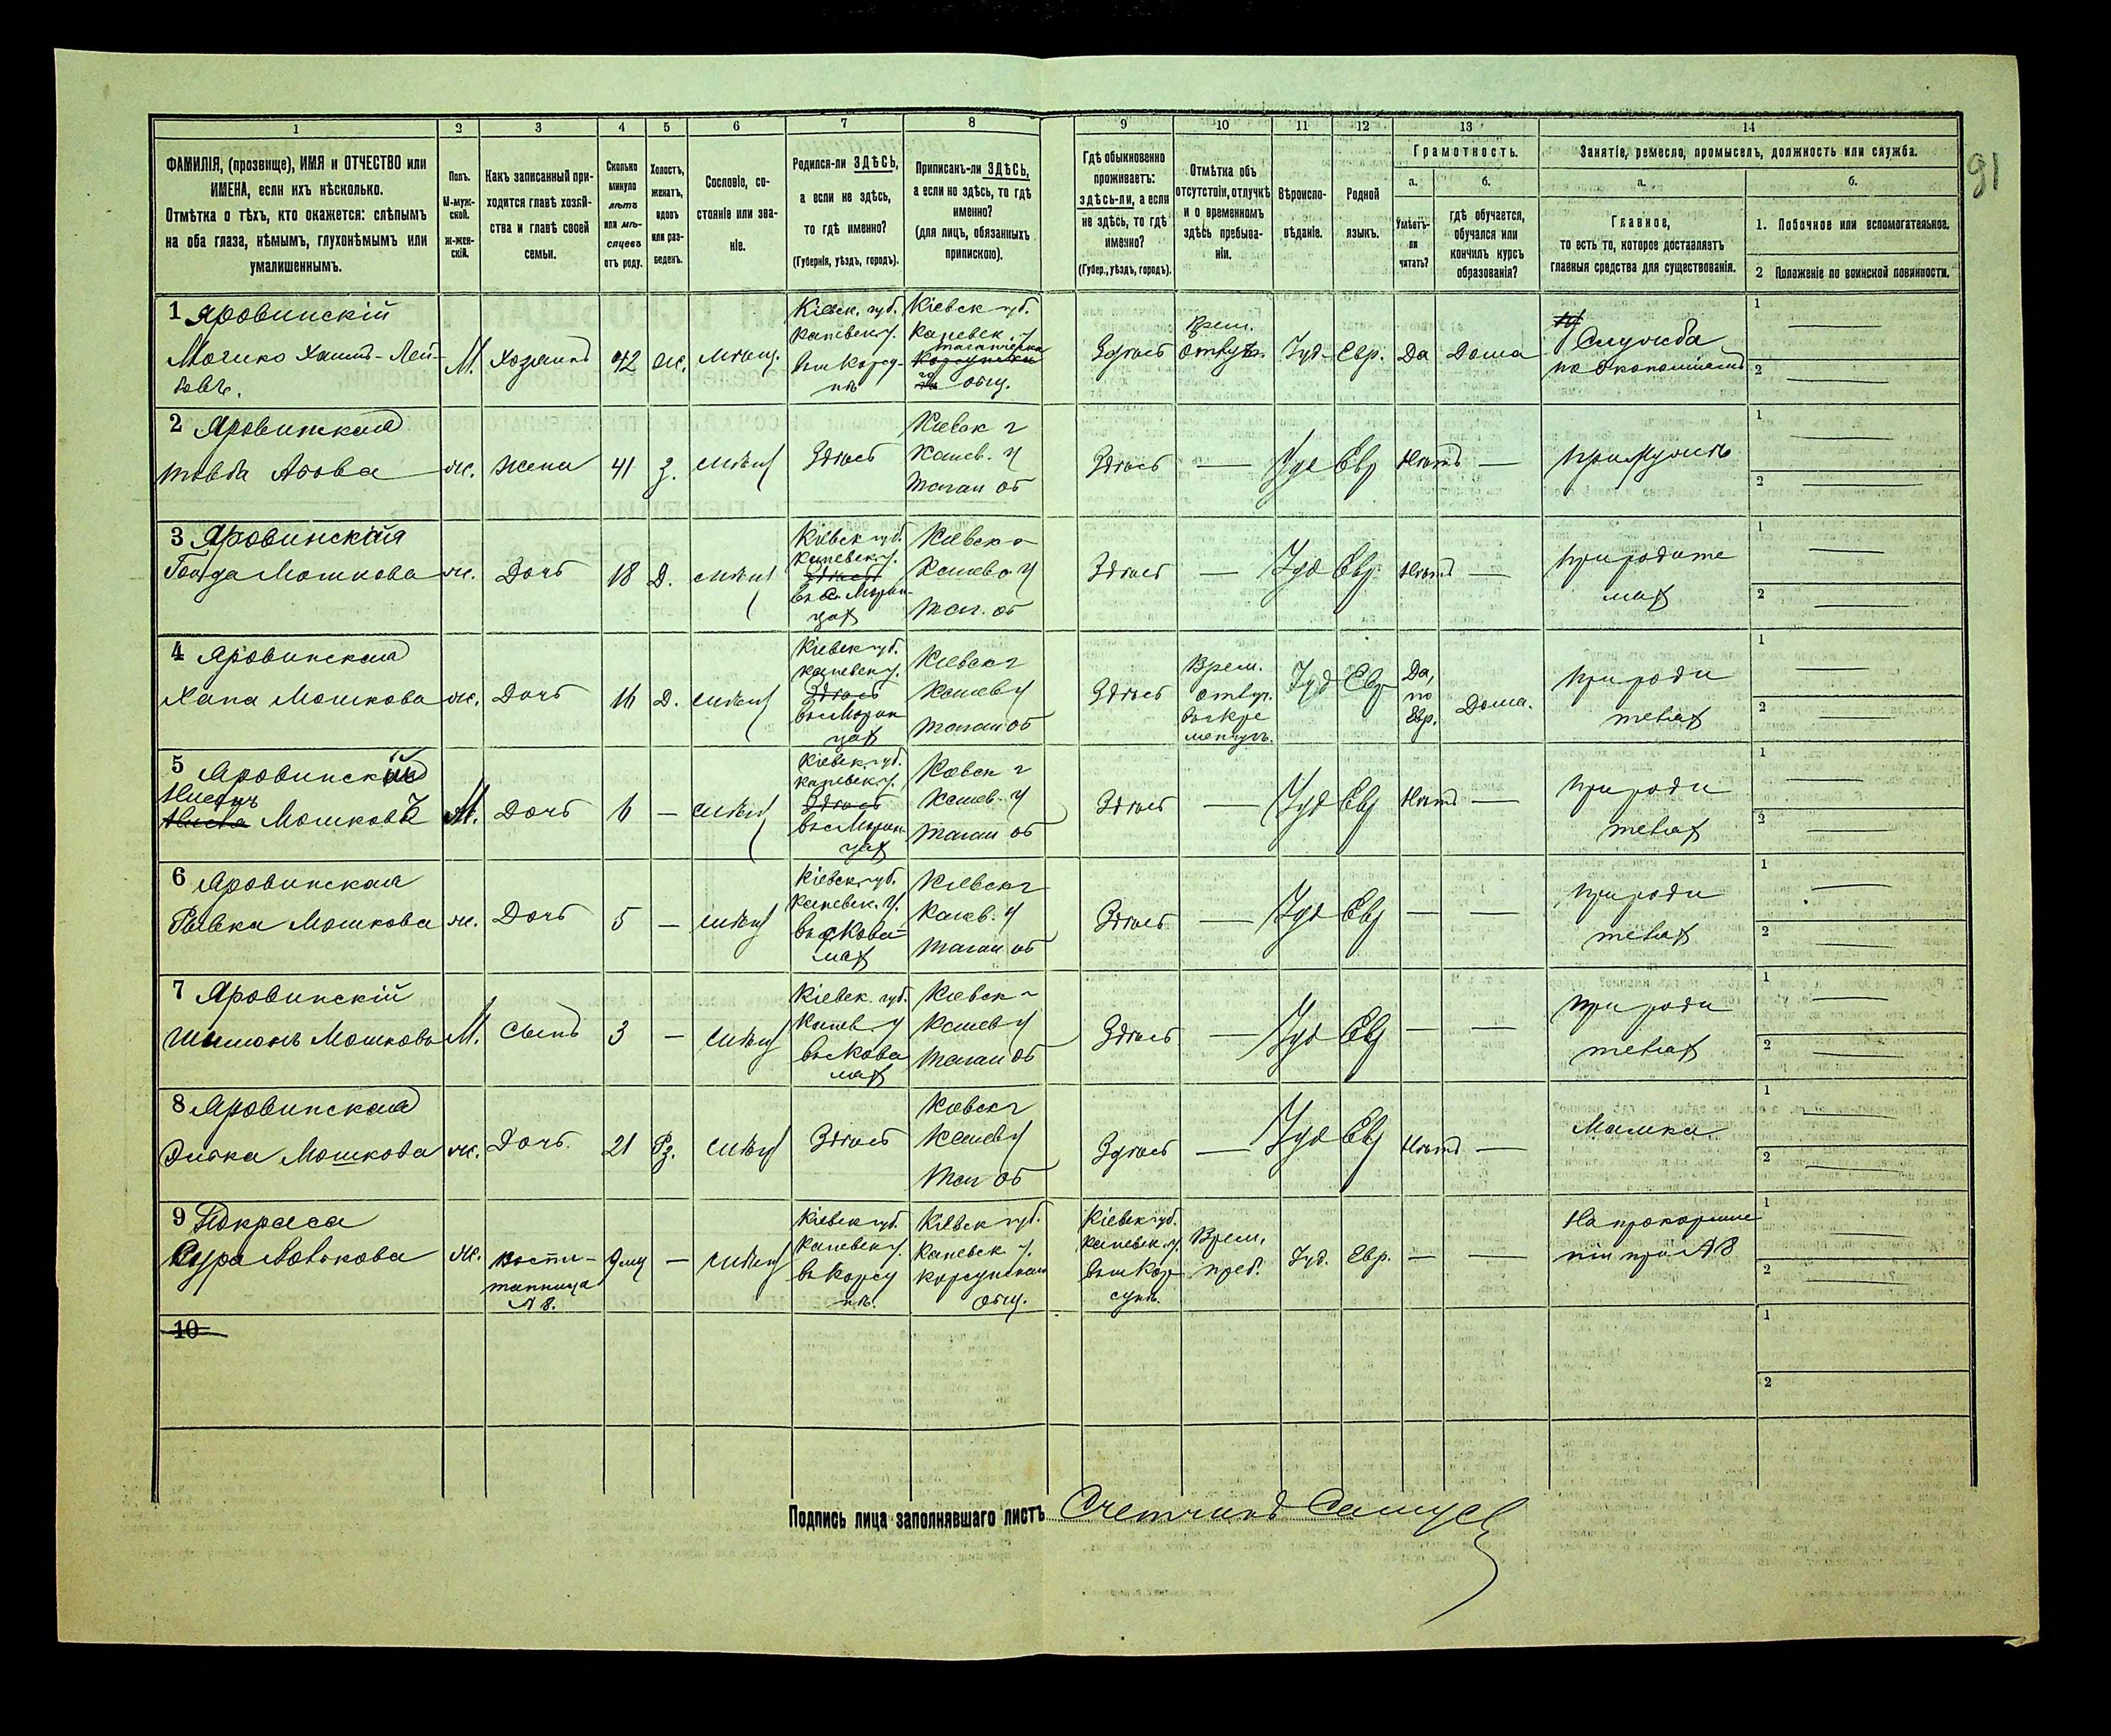 91
1
2
3
4
5
6
7
8
9
10
11
12
13
14
ФАМИЛІЯ, (прозвище), ИМЯ и ОТЧЕСТВО или
ИМЕНА, если ихъ нѣсколько.
Отмѣтка о тѣхъ, кто окажется: слѣпымъ
на оба глаза, нѣмымъ, глухонѣмымъ или
умалишеннымъ.
Полъ.
М-муж-
ской.
Ж-жен-
скій.
Какъ записанный при-
ходится главѣ хозяй-
ства и главѣ своей
семьи.
Сколько
минуло
лѣтъ
или мѣ-
сяцевъ
отъ роду.
Холостъ,
женатъ,
вдовъ
или раз-
веденъ.
Сословіе, со-
стояніе или зва-
ніе.
Родился-ли ЗДѢСЬ,
а если не здѣсь,
то гдѣ именно?
(Губернія, уѣздъ, городъ).
Приписанъ-ли ЗДѢСЬ,
а если не здѣсь, то гдѣ
именно?
(для лицъ, обязанныхъ
припискою).
Гдѣ обыкновенно
проживаетъ:
здѣсь-ли, а если
не здѣсь, то гдѣ
именно?
(Губер., уѣздъ, городъ).
Отмѣтка объ
отсутствіи, отлучкѣ
и о временномъ
здѣсь пребыва-
ніи.
Вѣроиспо-
вѣданіе.
Родной
языкъ.
Грамотность.
а.
б.
Умѣетъ-
ли
читать?
гдѣ обучается,
обучался или
кончилъ курсъ
образованія?
Занятіе, ремесло, промыселъ, должность или служба.
а.
б.
Главное,
то есть то, которое доставляетъ
главныя средства для существованія.
1. Побочное или вспомогательное.
2 Положеніе по воинской повинности.
1 Яровинскій
Мошко Хаимъ-Лей-
бовъ.
М. Хозяинъ 42 ж. мѣщ.
Кіевск. губ.
Каневск. у.
въ м Корсу-
нѣ
Кіевск губ.
Каневск. у
общ.
Здѣсь
Врем.
Іуд. Евр. Да Дома
Служба
1
2
2 Яровинская
Товба Абова ж. Жена 41 З. мѣщ Здѣсь
Кіевск г
Канев. у
Таган об
Здѣсь — Іуд Евр Нѣтъ — при мужѣ
1
2
3 Яровинская
Мошкова ж. Дочь 18 Д. мѣщ
Кіевск губ.
Каневск у.
Здѣсь
въ с. Морин-
цах
Кіевск г
Канев у
Таг. об
Здѣсь — Іуд Евр. Нѣтъ —
при родите
лях
1
2
4 Яровинская
Хана Мошкова ж. Дочь 16 Д. мѣщ
Кіевск губ.
Каневск у.
Здѣсь
въ с Морин
цах
Кіевск г
Канев у
Таган об
Здѣсь
Врем.
отлуч.
въ г Кре
менчугъ.
Іуд Евр
Да,
по
Евр.
Дома.
при роди
телях
1
2
5 Яровинскій
Нисонъ
Мошковъ М. Дочь 6 — мѣщ
Кіевск губ.
Каневск у.
Здѣсь
въ с Морин
цах
Кіевск г
Канев. у
Таган об
Здѣсь — Іуд Евр Нѣтъ —
при роди
телях
1
2
6 Яровинская
Ривка Мошкова ж. Дочь 5 — мѣщ
Кіевск губ.
Каневск. у.
въ с Кова-
лях
Кіевск г
Канев. у
Таган об
Здѣсь — Іуд Евр — —
при роди
телях
1
2
7 Яровинскій
Шимонъ Мошковъ М. Сынъ 3 — мѣщ
Кіевск. губ.
Канев у
въ с Кова
лях
Кіевск г
Канев у
Таган об
Здѣсь — Іуд Евр — —
при роди
телях
1
2
8 Яровинская
Элька Мошкова ж. Дочь. 21 Рз. мѣщ Здѣсь
Кіевск г
Канев у
Таг об
Здѣсь — Іуд Евр Нѣтъ — Мамка
1
2
9 Покраса
Сура ж.
воспи-
танница
№ 8.
9 мц — мѣщ
Кіевск губ.
Каневск у.
въ Корсу
нѣ.
Кіевск губ.
Каневск. у.
Корсунскаго
общ.
Кіевск губ.
Каневск. у.
въ м Кор
сунѣ.
Врем.
преб.
Іуд. Евр. — —
На прокормле
ніи при № 8
1
2
10
1
2
Подпись лица заполнявшаго листъ Счетчикъ